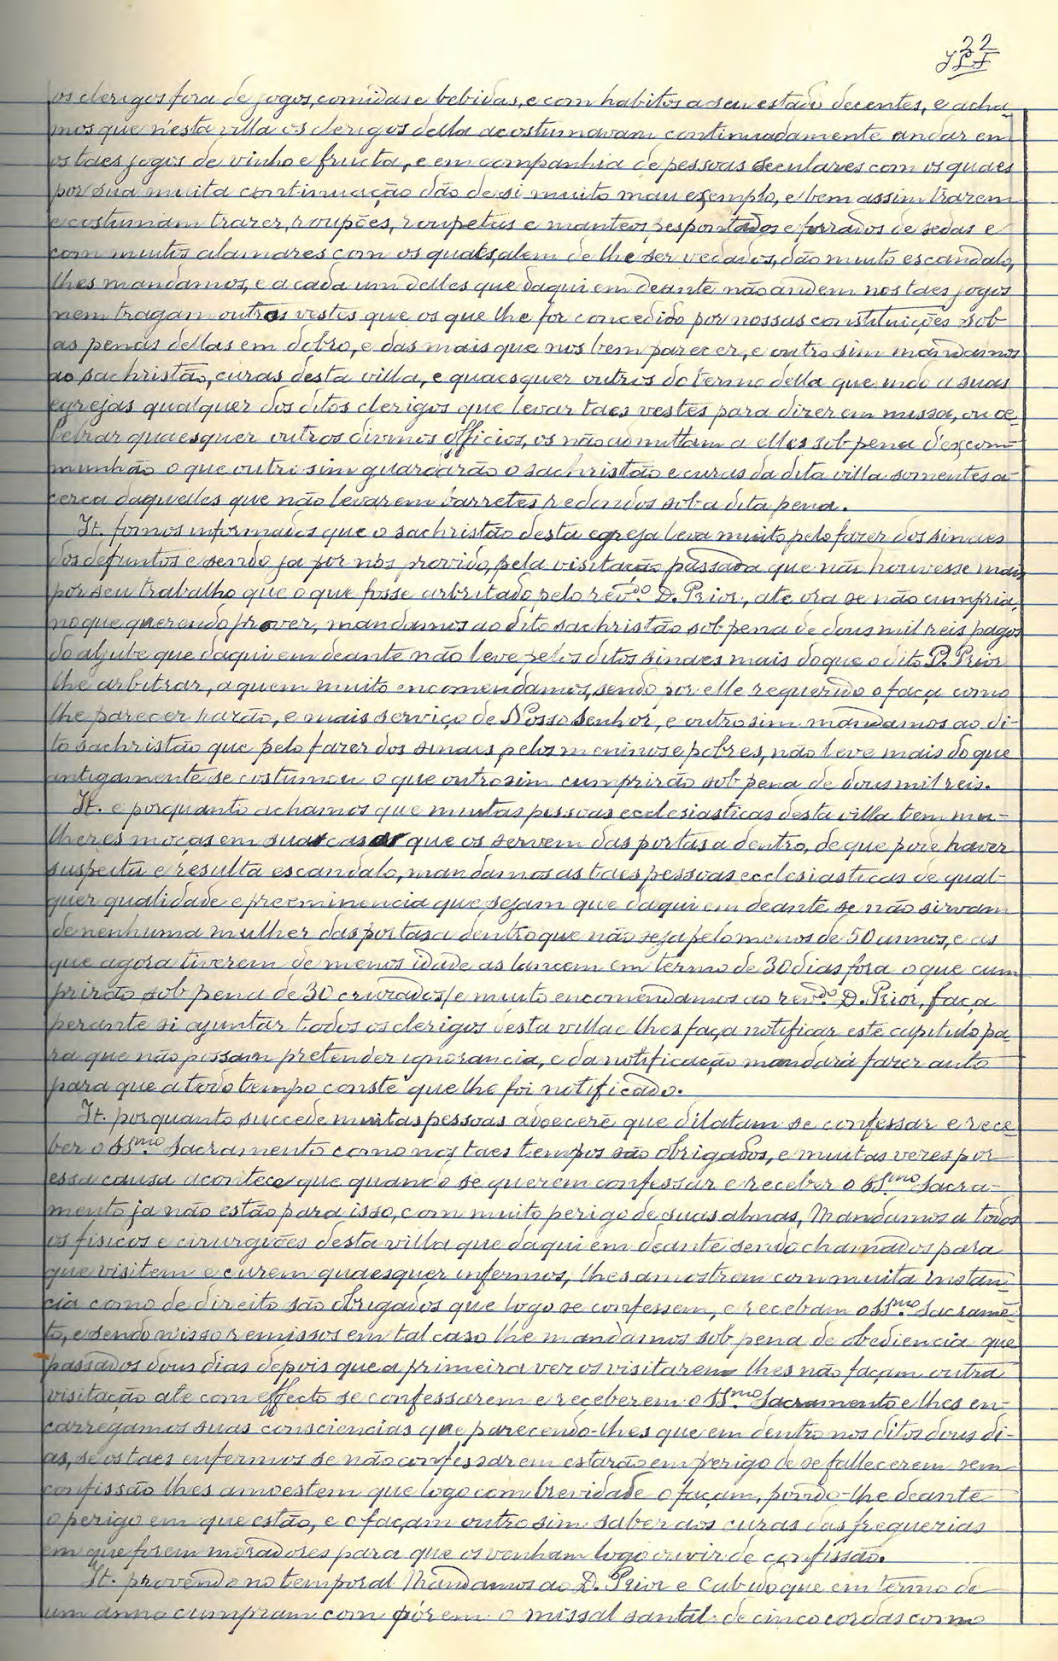 22
os clerigos fora de jogos, comidas e bebidas, e com habitos a seu estado decentes, e acha-
mos que n'esta villa os clerigos della acostumavam continuadamente andar em
os taes jogos de vinho e fructa, e em companhia de pessoas seculares com os quaes
por sua muita continuação dão de si muito mau exemplo, e bem assim trazem
e costumam trazer, roupões, roupetas e manteos, pespontados e forrados de sedas e
com muitos alamares com os quaes, alem de lhe ser vedados, dão muito escandalo,
lhes mandamos, e a cada um delles que daqui em deante não andem nos taes jogos
nem tragam outros vestes que os que lhe for concedido por nossas constituições sob
as penas dellas em dobro, e das mais que nos bem parecer, e outro sim mandamos
ao sachristão, curas desta villa, e quaesquer outros do termo della que indo a suas
egrejas qualquer dos ditos clerigos que levar taes vestes para dizerem missa, ou ce-
lebrar quaesquer outros divinos officios, os não admittam a elles sob pena d'excom-
munhão o que outro sim guardarão o sachristão e curas da dita villa somentes a-
cerca daquelles que não levarem barretes redondos sob a dita pena.
It. fomos informados que o sachristão desta egreja leva muito pelo fazer dos sinaes
dos defuntos e sendo ja por nós provido, pela visitação passada que não houvesse mais
por seu trabalho que o que fosse arbritado pelo rev.do D. Prior, ate ora se não cumpria,
no que querendo prover, mandamos ao dito sachristão sob pena de dous mil reis pagos
do aljube que daqui em deante não leve pelos ditos sinaes mais do que o dito D. Prior
lhe arbitrar, a quem muito encomendamos, sendo por elle requerido o faça como
lhe parecer razão, e mais serviço de Nosso Senhor, e outro sim mandamos ao di-
to sachristão que pelo fazer dos sinaes pelos meninos e pobres, não leve mais do que
antigamente se costumou o que outrosim cumprirão sob pena de dous mil reis.
It. e porquanto achamos que muitas pessoas ecclesiasticas desta villa tem mu-
lheres moças em suas casas que os servem das portas a dentro, de que pode haver
suspeita e resulta escandalo, mandamos as taes pessoas ecclesiasticas de qual-
quer qualidade e preeminencia que sejam que daqui em deante se não sirvam
de nenhuma mulher das portas a dentro que não seja pelo menos de 50 annos, e as
que agora tiverem de menos idade as lancem em termo de 30 dias fora o que cum
prirão sob pena de 30 cruzados, e muito encomendamos ao rev.do D. Prior, faça
perante si ajuntar todos os clerigos desta villa e lhes faça notificar este capitulo pa-
ra que não possam pretender ignorancia, e da notificação mandará fazer auto
para que a todo tempo conste que lhe foi notificado.
It. porquanto succede muitas pessoas adoecerẽ que dilatam se confessar e rece-
ber o SS.mo Sacramento como nos taes tempos são obrigados, e muitas vezes por
essa causa acontece que quando se querem confessar e receber o SS.mo Sacra-
mento ja não estão para isso, com muito perigo de suas almas, Mandamos a todos
os fisicos e cirurgiões desta villa que daqui em deante sendo chamados para
que visitem e curem quaesquer infermos, lhes amostrem com muita instan-
cia como de direito são obrigados que logo se confessem, e recebam o SS.mo Sacramẽ-
to, e sendo n'isso remissos em tal caso lhe mandamos sob pena de obediencia que
passados dous dias depois que a primeira vez os visitarem lhes não façam outra
visitação ate com effecto se confessarem e receberem o SS.mo Sacramento e lhes en-
carregamos suas consciencias que parecendo-lhes que em dentro nos ditos dous di-
as, se os taes enfermos se não confessarem estarão em perigo de se fallecerem sem
confissão lhes amoestem que logo com brevidade o façam, pondo-lhe deante
o perigo em que estão, e o façam outro sim saber aos curas das freguezias
em que forem moradores para que os venham logo ouvir de confissão.
It. provendo no temporal Mandamos ao D. Prior e Cabido que em termo de
um anno cumpram com pórem o missal santal de cinco cordas como